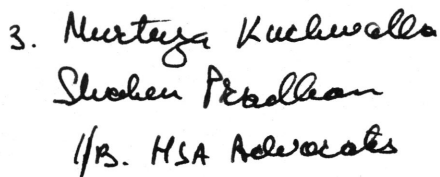 3. Murtuza Kachwalla
Shaheen Pradhan
i/B. HSA Advocates